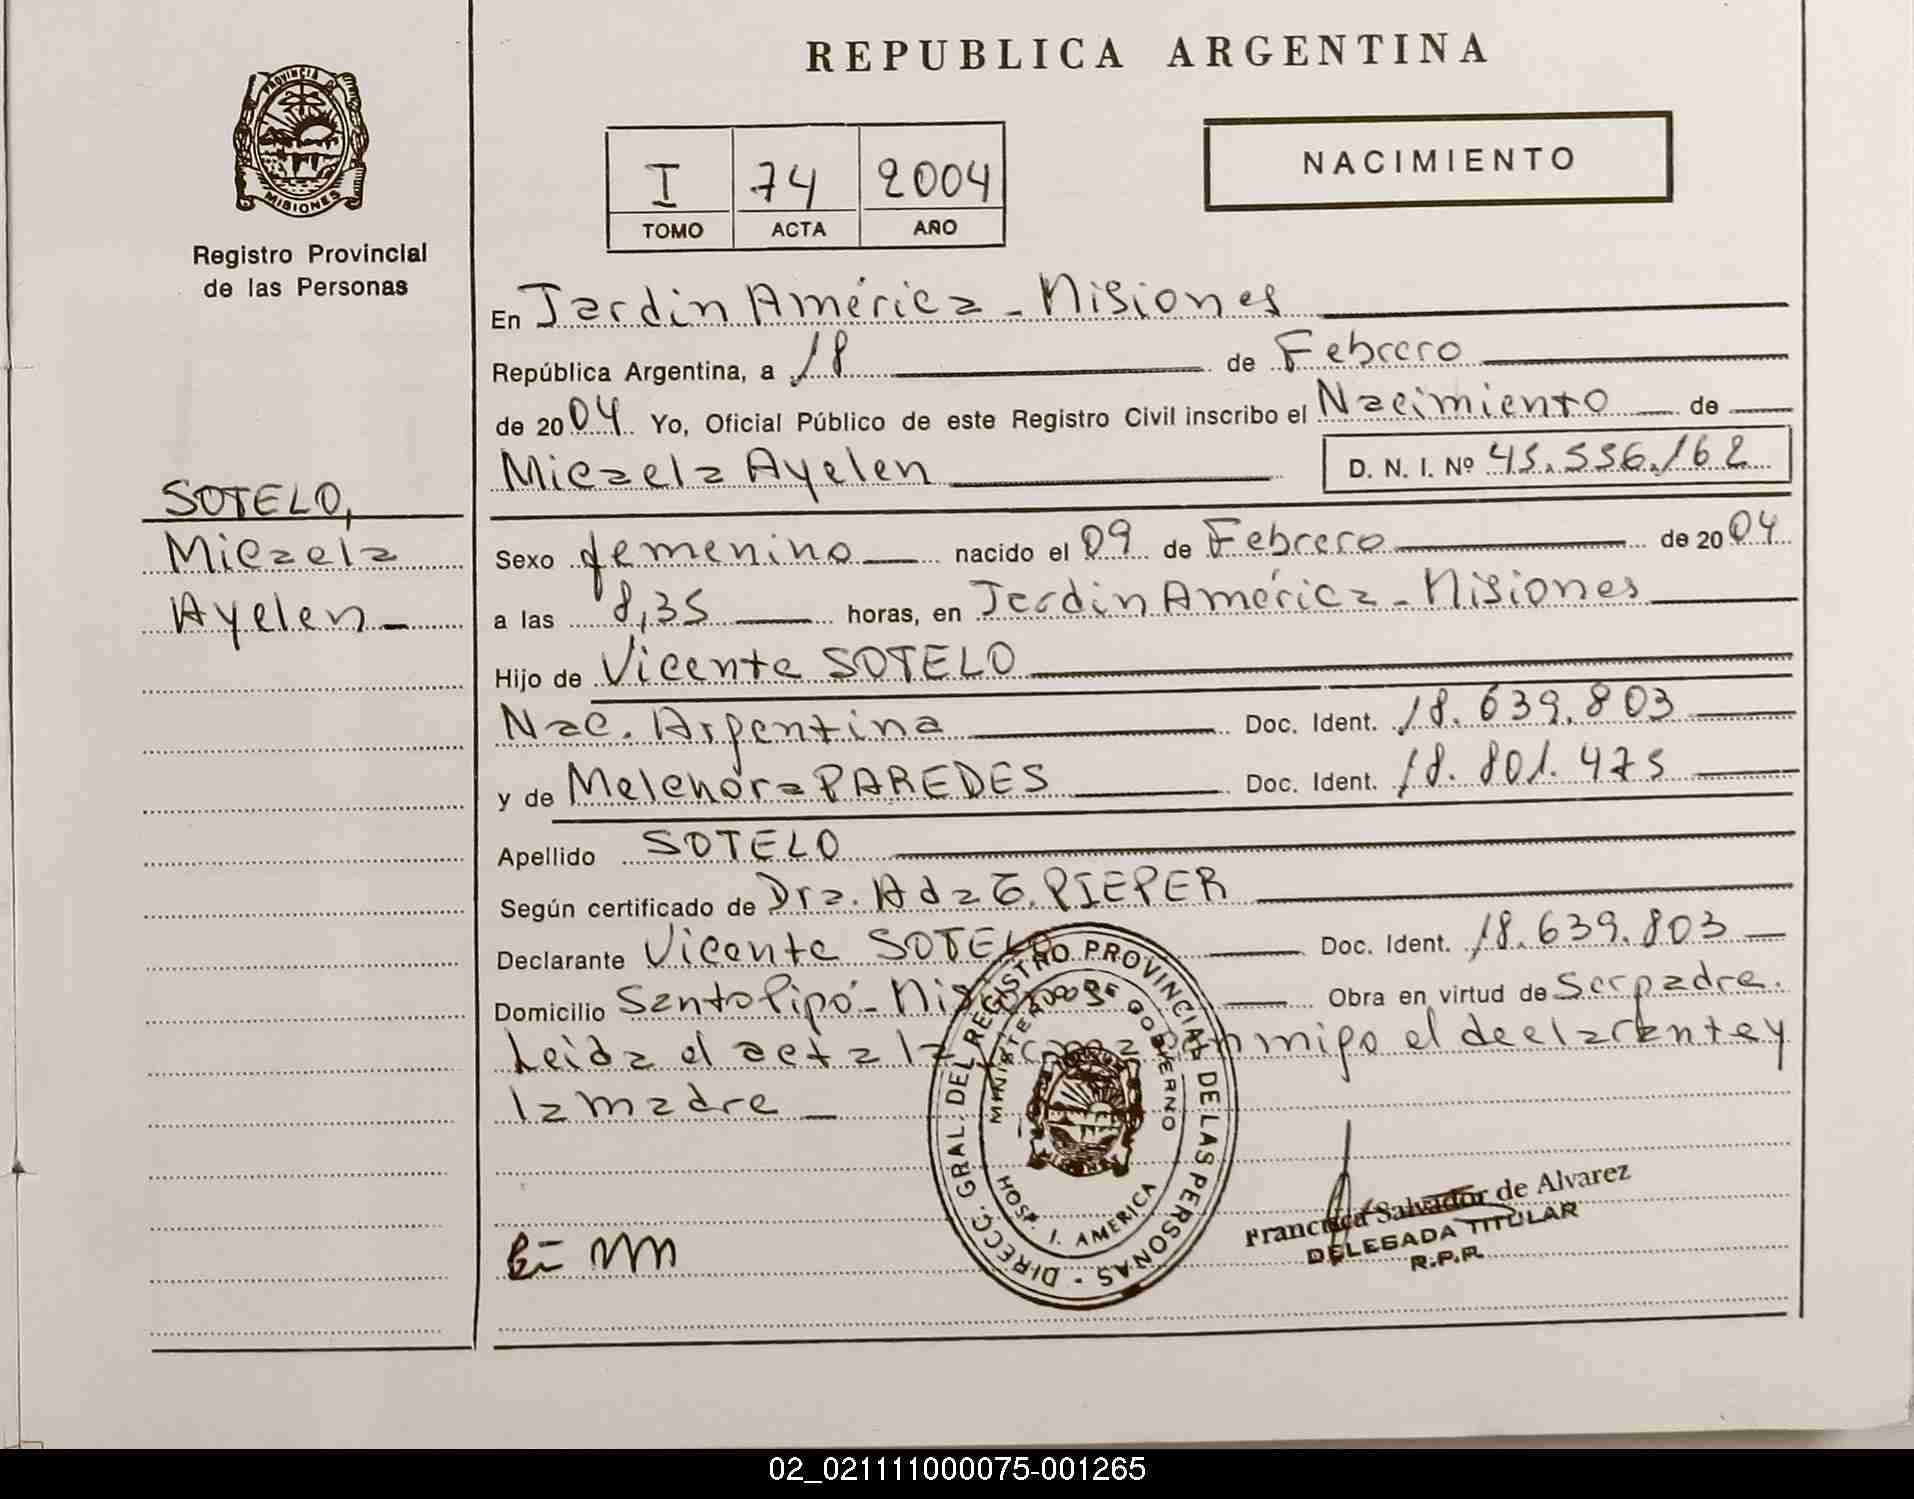 REPUBLICA ARGENTINA
PROVINCIA DE MISIONES
Registro Provincial
de las Personas
I 74 2004
TOMO ACTA AÑO
NACIMIENTO
En Jardin América - Misiones
República Argentina, a 18 de Febrero
de 2004 Yo, Oficial Público de este Registro Civil inscribo el Nacimiento de
Micaela Ayelen D. N. I. Nº 45.556.162
SOTELO,
Micaela
Ayelen
Sexo femenino nacido el 09 de Febrero de 2004
a las 8,35 horas, en Jardin América - Misiones
Hijo de Vicente SOTELO
Nac. Argentina Doc. Ident. 18.639.803
y de Melchora PAREDES Doc. Ident. 18.801.475
Apellido SOTELO
Según certificado de Dra. Ada E. PIEPER
Declarante Vicente SOTELO Doc. Ident. 18.639.803
Domicilio Santo Pipó - Misiones Obra en virtud de Ser padre.
Leida el acta la firman conmigo el declarante y
la madre
DIRECC. GRAL. DEL REGISTRO PROVINCIAL DE LAS PERSONAS
MINISTERIO DE GOBIERNO
HOSP. J. AMERICA
Francisca Salvador de Alvarez
DELEGADA TITULAR
R.P.P.
02_021111000075-001265